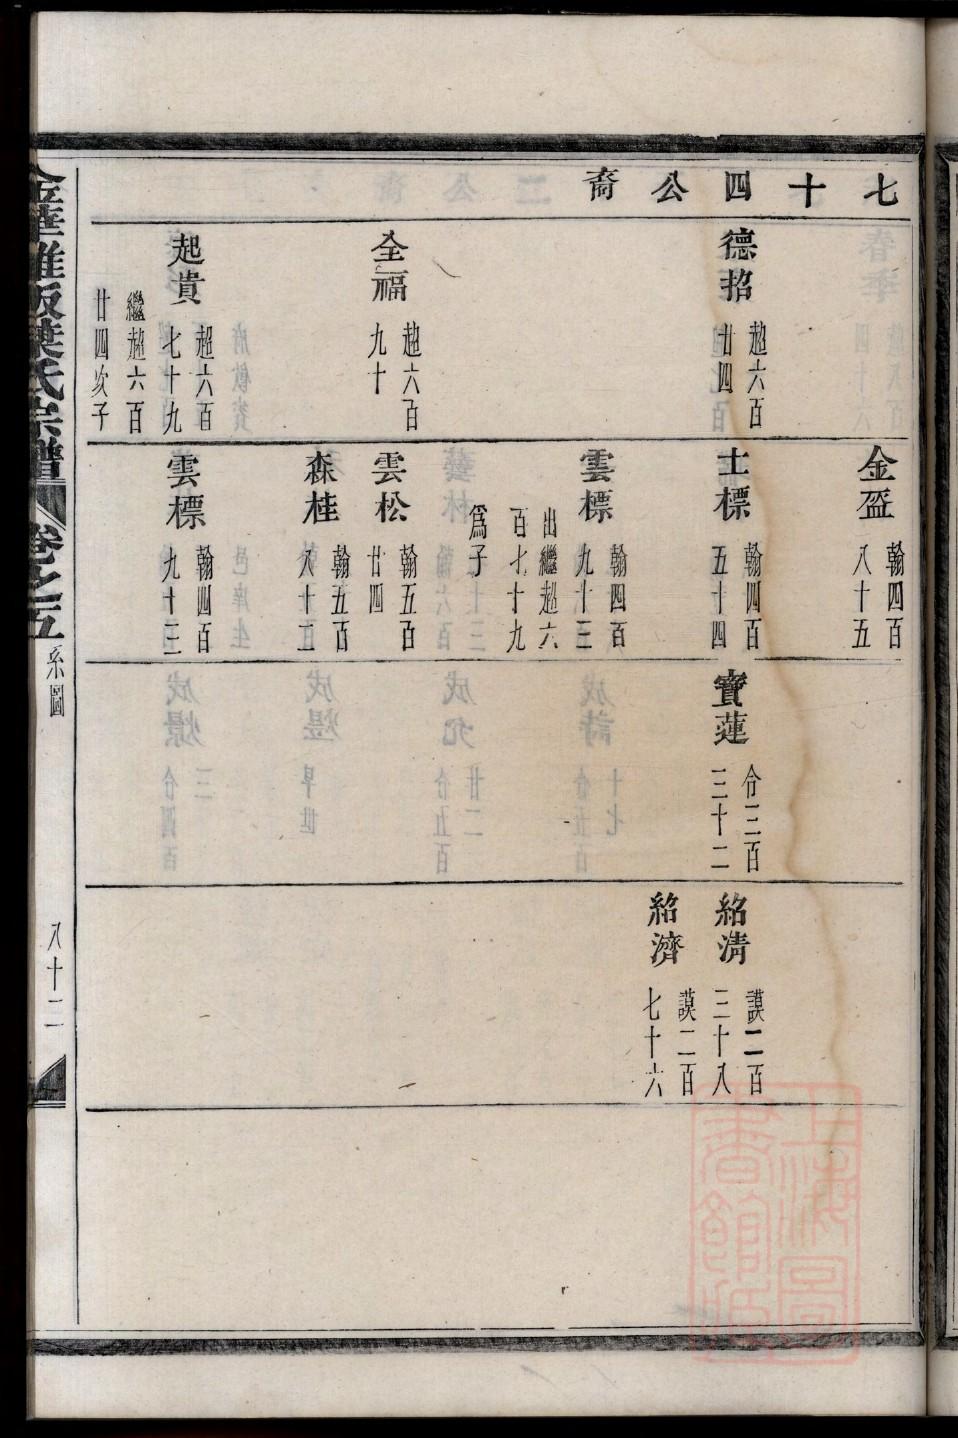 七十四公裔
德招
趨六百
廿四
全福
趨六百
九十
起貴
趨六百
七十九
繼趨六百
廿四次子
金盈
翰四百
八十五
士標
翰四百
五十四
雲標
翰四百
九十三
出繼趨六
百七十九
為子
雲松
翰五百
廿四
森桂
翰五百
八十五
雲標
翰四百
九十三
寶蓮
令三百
三十二
紹清
謨二百
三十八
紹濟
謨二百
七十六
卷之五
系圖
八十二